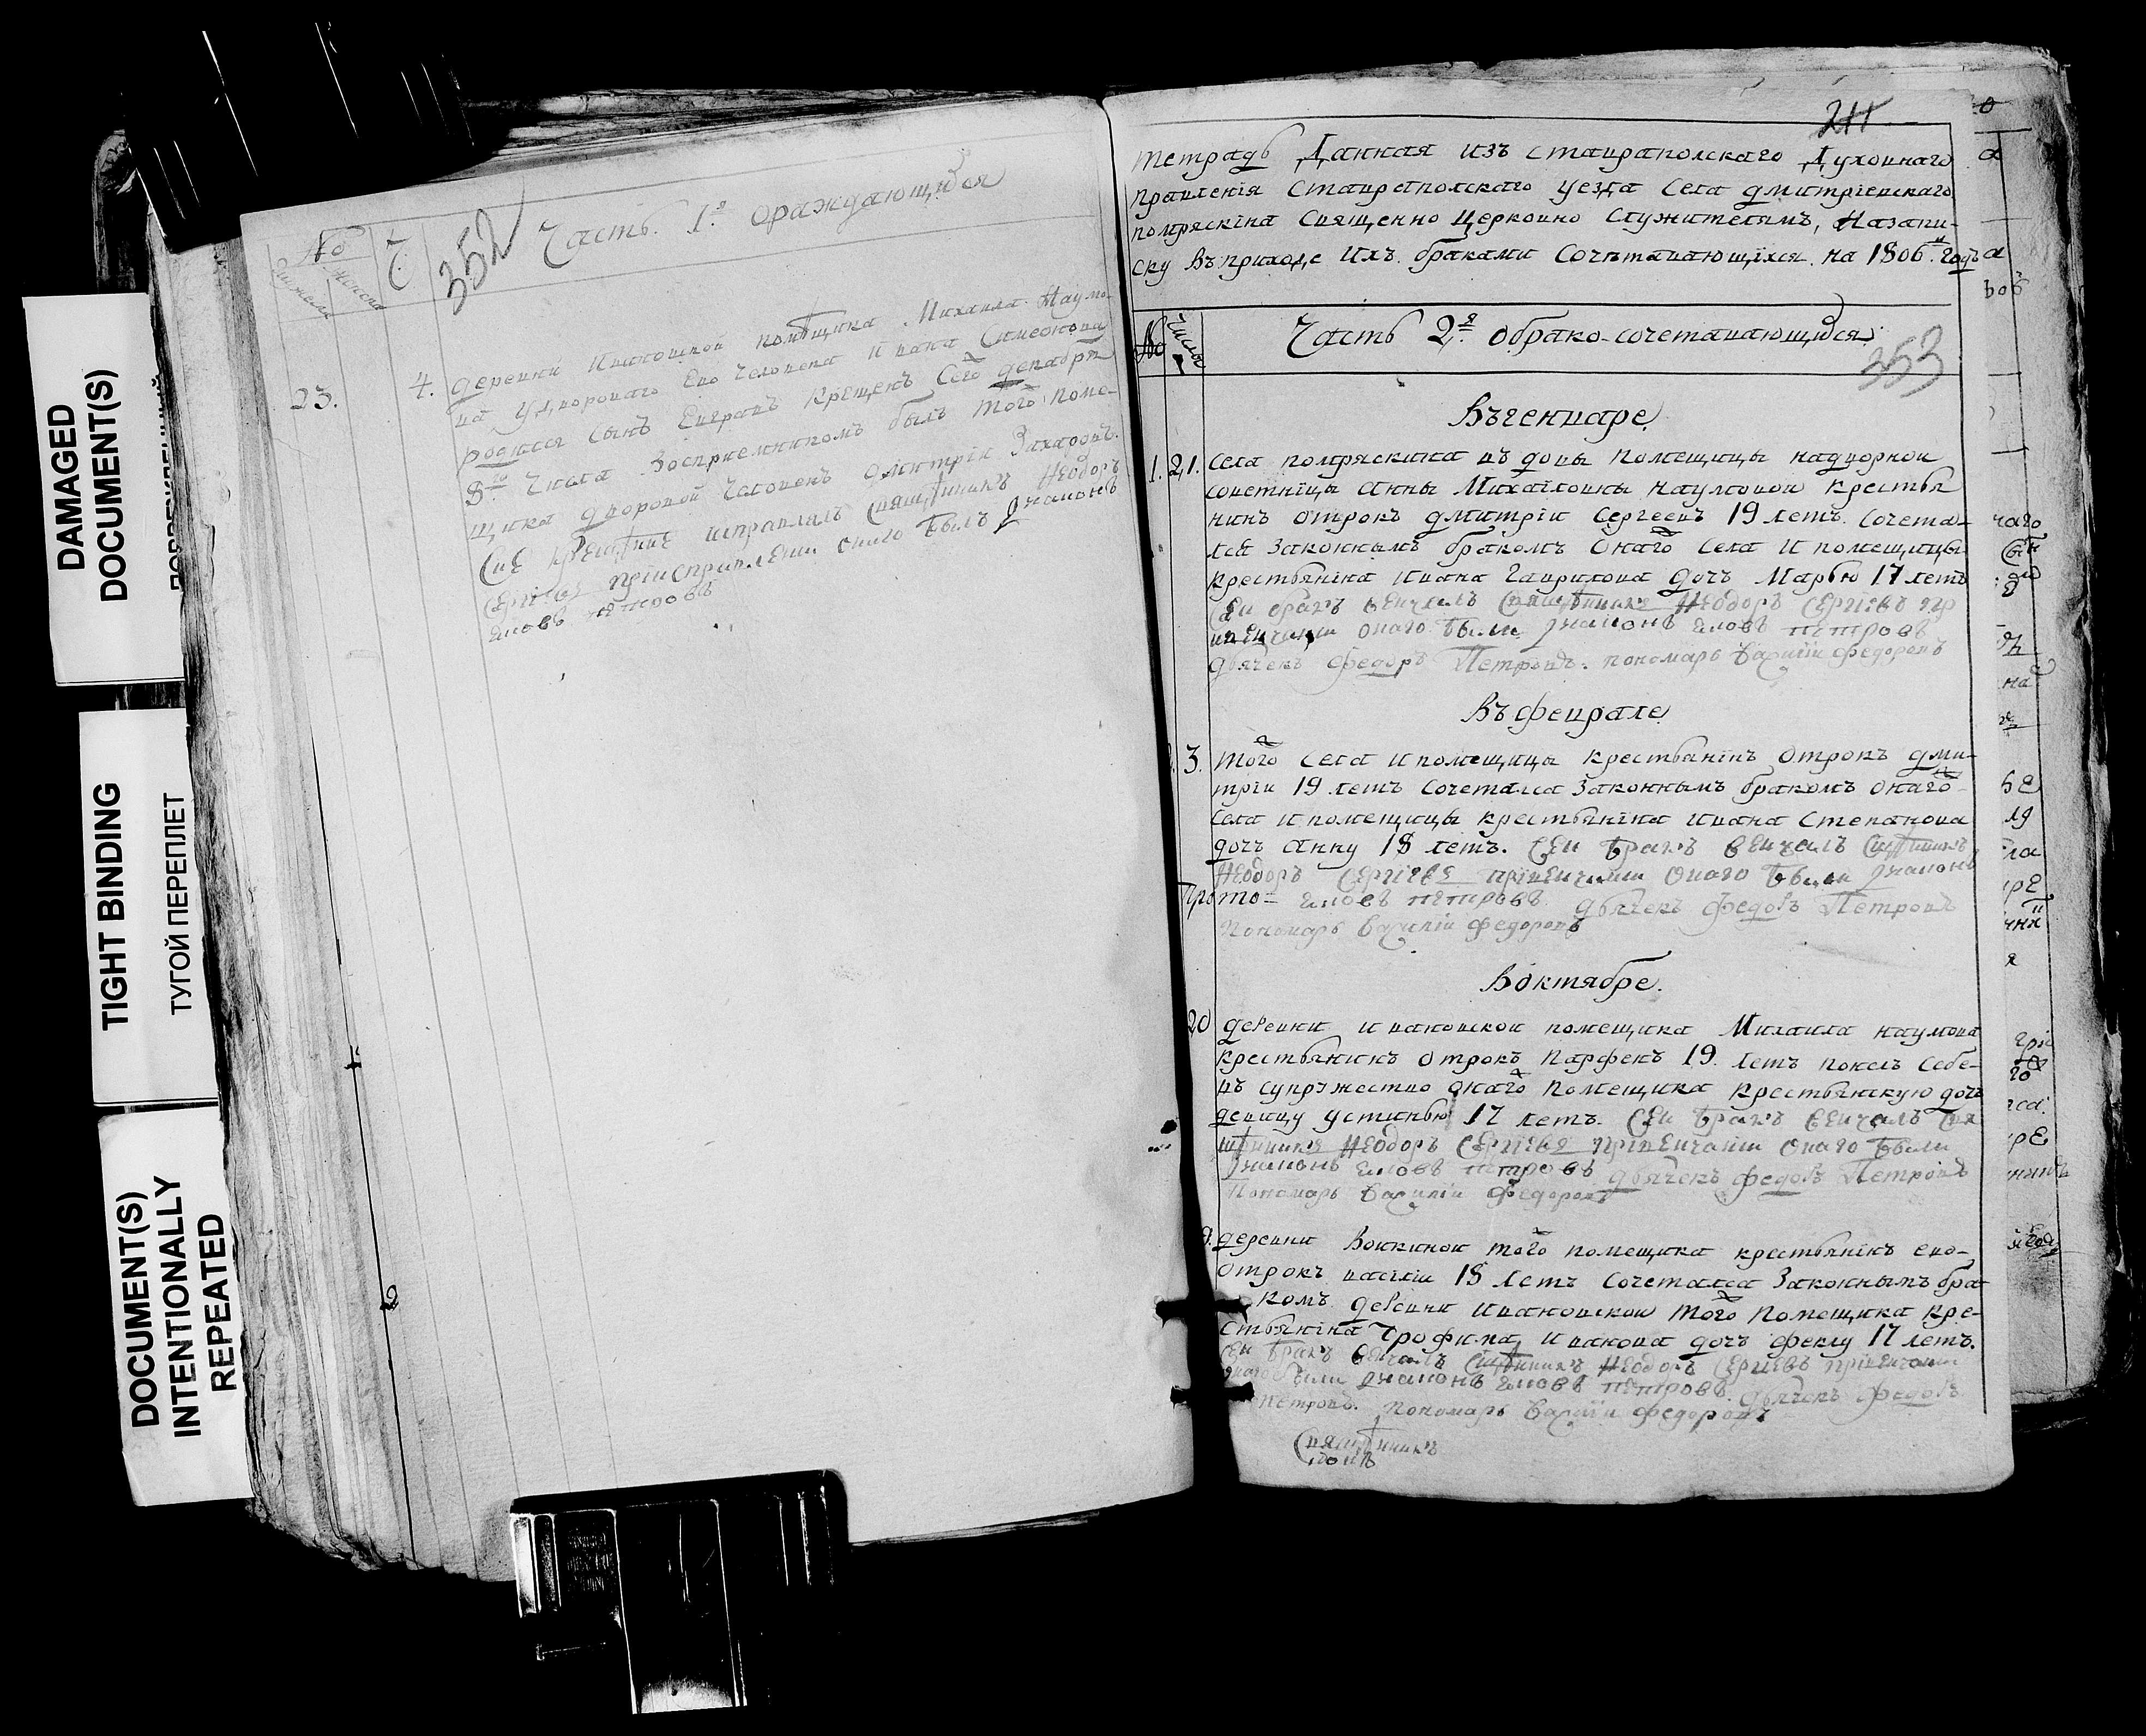 DAMAGED
DOCUMENT(S)
TIGHT BINDING
ТУГОЙ ПЕРЕПЛЕТ
DOCUMENT(S)
INTENTIONALLY
REPEATED
№
Ч.
352
Часть 1.я ораждающихся
23.
4. деревни Ивановской помѣщика Михаила Наумо-
ва удворового ево человека Ивана Симеонова
родился сынъ Евграфъ крещенъ сего декабря
8го числа восприемникомъ былъ того поме-
щика дворовой человекъ дмитрiй Захаровъ.
Сие крещение исправлялъ священникъ Ѳеодоръ
Сергиевъ приисправлении оного былъ диаконъ
иаковъ петровъ
211
тетрадь Данная изъ ставрапольскаго Духовнаго
правленiя ставрапольскаго уезда села дмитрiевскаго
помряскина священно церковно служителямъ, Назапи-
ску въ приходе ихъ браками сочетавающихся на 1806й годъ
№
Числы
Часть 2,я обрако-сочетавающихся
353
Въ генваре
1. 21. села помряскина въ довы помещицы надворной
советницы анны Михаиловны наумовой крестья
нинъ отрокъ дмитрiи сергеевъ 19 летъ сочета-
лся законнымъ бракомъ онаго села и помещицы
крестьянiна ивана гаврилова дочь Марью 17 летъ
сеи бракъ венчалъ священникъ Ѳеодоръ Сергiевъ пр
ивенчании онаго были диаконъ иаковъ петровъ
дьячекъ федоръ Петровъ. пономарь василiи федоровъ
Въ феврале
3. того села и помещицы крестьянiнъ отрокъ дми-
трiи 19 летъ сочетался законнымъ бракомъ онаго
села и помещицы крестьянiна ивана степанова
дочь анну 18 летъ. Сеи бракъ венчалъ священникъ
Ѳеодоръ Сергiевъ привенчании онаго были диаконъ
иаковъ петровъ. дьячекъ федоръ Петровъ
Пономарь василiи федоровъ
Воктябре.
20 деревни ивановской помещика Михаила наумова
крестьянинъ отрокъ парфенъ 19 летъ понелъ себе-
въ супружество онаго помещика крестьянскую дочь
девицу устинью 17 летъ. Сеи бракъ венчалъ свя
щенникъ Ѳеодоръ Сергiевъ привенчании онаго были
диаконъ иаковъ петровъ дьячекъ федоръ Петровъ
Пономарь василiи федоровъ
деревни Воикиной того помещика крестьянiнъ ево-
отрокъ василiи 18 летъ сочетался законнымъ бра
комъ деревни ивановской того помещика кре-
стьянiна трофима иванова дочь феклу 17 летъ.
Сеи бракъ венчалъ священникъ Ѳеодоръ Сергиевъ привенчании
онаго были диаконъ иаковъ петровъ. дьячекъ федоръ
Петровъ. Пономарь василiи федоровъ
Священникъ